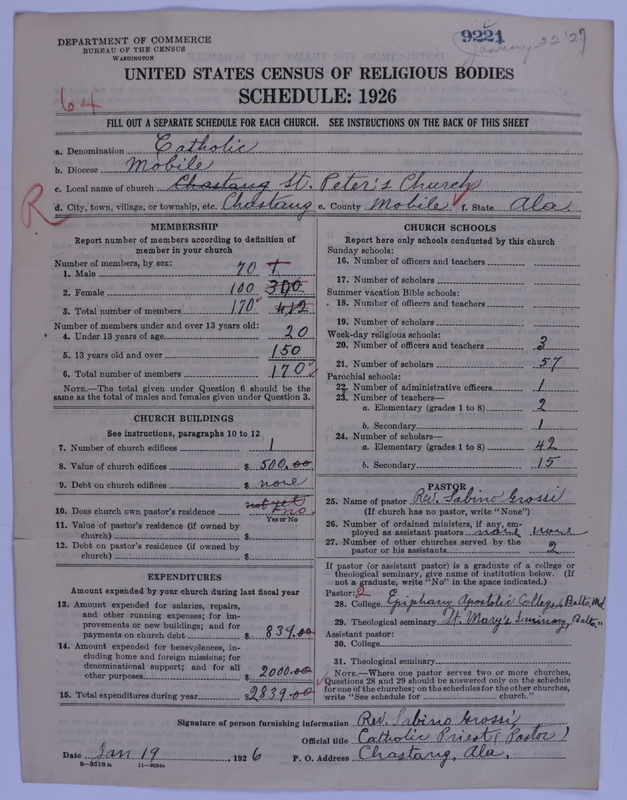 DEPARTMENT OF COMMERCE
BUREAU OF THE CENSUS
WASHINGTON
9221
January 22 '27
UNITED STATES CENSUS OF RELIGIOUS BODIES
SCHEDULE: 1926
64
FILL OUT A SEPARATE SCHEDULE FOR EACH CHURCH. SEE INSTRUCTIONS ON THE BACK OF THIS SHEET
a. Denomination Catholic
b. Diocese Mobile
c. Local name of church Chastang St. Peter's Church
R
d. City, town, village, or township, etc. Chastang e. County Mobile f. State Ala.
MEMBERSHIP
Report number of members according to definition of
member in your church
Number of members, by sex:
1. Male 70
2. Female 100
3. Total number of members 170 412
Number of members under and over 13 years old:
4. Under 13 years of age 20
5. 13 years old and over 150
6. Total number of members 170
NOTE.—The total given under Question 6 should be the
same as the total of males and females given under Question 3.
CHURCH BUILDINGS
See instructions, paragraphs 10 to 12
7. Number of church edifices 1
8. Value of church edifices $ 500.00
9. Debt on church edifices $ none
10. Does church own pastor's residence not yet no
Yes or No
11. Value of pastor's residence (if owned by
church) $
12. Debt on pastor's residence (if owned by
church) $
EXPENDITURES
Amount expended by your church during last fiscal year
13. Amount expended for salaries, repairs,
and other running expenses; for im-
provements or new buildings; and for
payments on church debt $ 839.00
14. Amount expended for benevolences, in-
cluding home and foreign missions; for
denominational support; and for all
other purposes $ 2000.00
15. Total expenditures during year $ 2839.00
CHURCH SCHOOLS
Report here only schools conducted by this church
Sunday schools:
16. Number of officers and teachers
17. Number of scholars
Summer vacation Bible schools:
18. Number of officers and teachers
19. Number of scholars
Week-day religious schools:
20. Number of officers and teachers 3
21. Number of scholars 57
Parochial schools:
22. Number of administrative officers 1
23. Number of teachers—
a. Elementary (grades 1 to 8) 2
b. Secondary 1
24. Number of scholars—
a. Elementary (grades 1 to 8) 42
b. Secondary 15
PASTOR
25. Name of pastor Rev. Sabino Grossi
(If church has no pastor, write "None")
26. Number of ordained ministers, if any, em-
ployed as assistant pastors none none
27. Number of other churches served by the
pastor or his assistants 2
If pastor (or assistant pastor) is a graduate of a college or
theological seminary, give name of institution below. (If
not a graduate, write "No" in the space indicated.)
Pastor: 2
28. College Epiphany Apostolic College, Balto, Md
29. Theological seminary St. Mary's Seminary, Balto. "
Assistant pastor:
30. College
31. Theological seminary
NOTE.—Where one pastor serves two or more churches,
Questions 28 and 29 should be answered only on the schedule
for one of the churches; on the schedules for the other churches,
write "See schedule for church."
Signature of person furnishing information Rev. Sabino Grossi
Official title Catholic Priest (Pastor)
Date Jan 19, 1926 P. O. Address Chastang, Ala.
8-5518 a 11-9034a